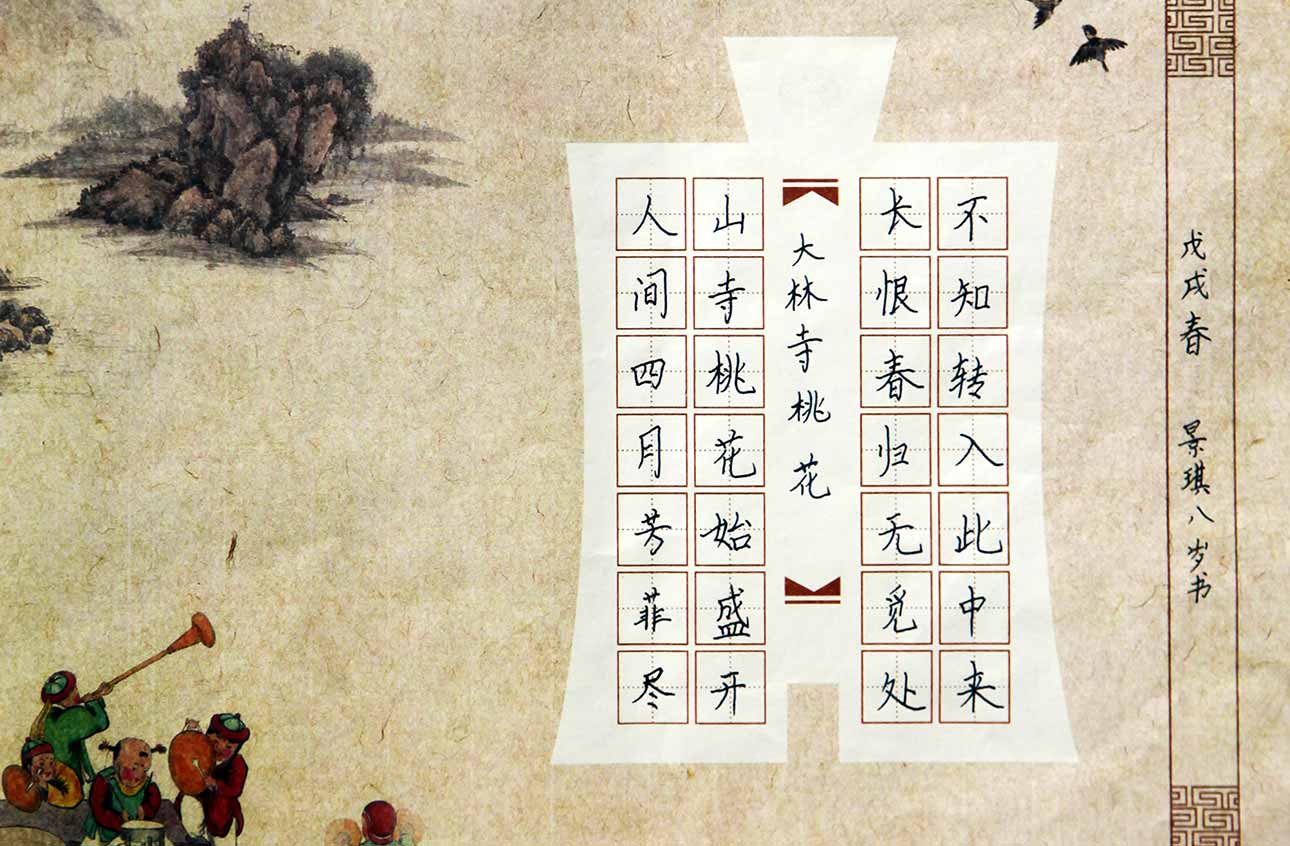 大林寺桃花
人间四月芳菲尽
山寺桃花始盛开
长恨春归无觅处
不知转入此中来
戊戌春 景琪八岁书